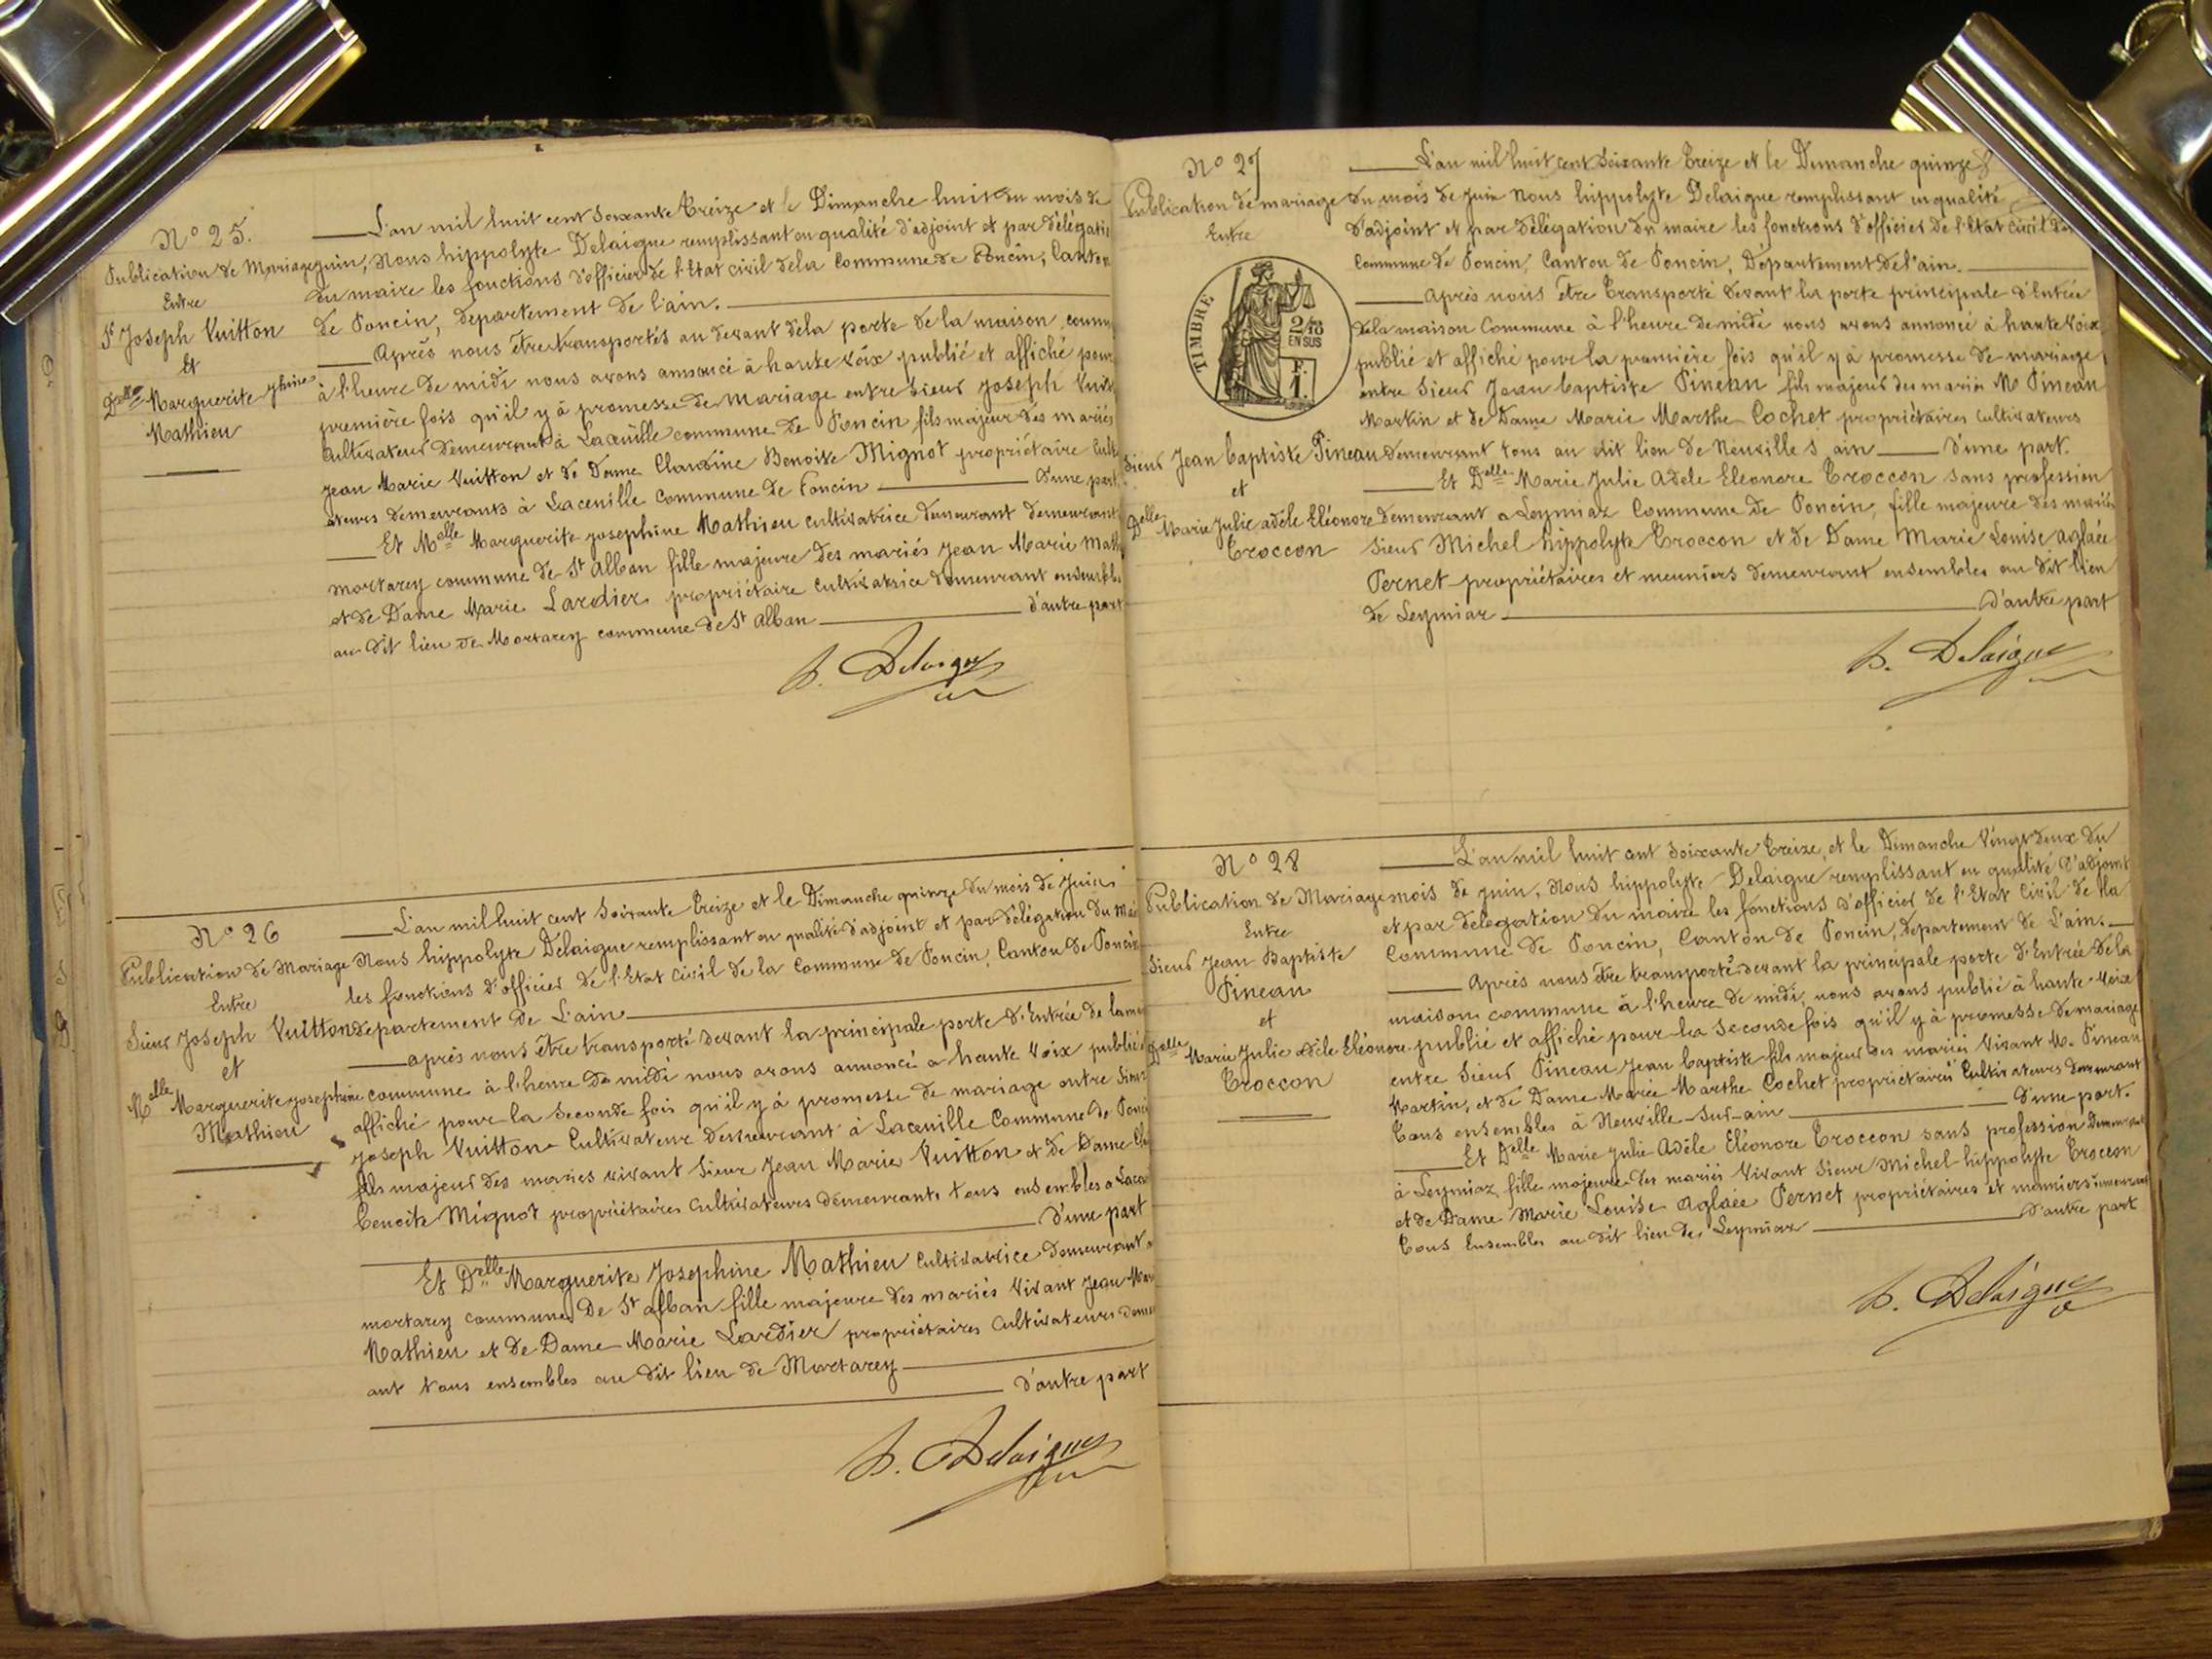 N° 25.
Publication de Mariage
Entre
Sr Joseph Vuitton
Et
Delle Marguerite jphine
Mathieu
L'an mil huit cent Soixante Treize et le Dimanche huit du mois de
juin, Nous hippolyte Delaigue remplissant en qualité d'adjoint et par délégati
du maire les fonctions d'officier de l'Etat civil dela Commune de Poncin, Canton
de Poncin, département de l'ain.
Après nous être transportés au devant dela porte de la maison comm
à l'heure de midi nous avons annoncé à haute voix publié et affiché pour
première fois qu'il y à promesse de Mariage entre Sieur Joseph Vuit
Cultivateur demeurant à Lacueille commune de Poncin fils majeur des mariés
Jean Marie Vuitton et de Dame Claudine Benoite Mignot propriétaire Culti
ateurs demeurants à Lacueille Commune de Poncin d'une part
Et Melle Marguerite josephine Mathieu cultivatrice demeurant demeurant
mortarey commune de St alban fille majeure des mariés Jean Marie Math
et de Dame Marie Lardier propriétaire Cultivatrice demeurant ensembles
au dit lieu de Mortarey commune de St alban d'autre part
h. Delaigue
N° 26
Publication de Mariage
Entre
Sieur Joseph Vuitton
et
Melle Marguerite josephine
Mathieu
L'an mil huit cent Soixante Treize et le Dimanche quinze du mois de Juin
Nous hippolyte Delaigue remplissant en qualité d'adjoint et par délégation du mai
les fonctions d'officier de l'Etat Civil de la Commune de Poncin, Canton de Poncin
departement de L'ain
après nous être transporté devant la principale porte d'Entrée de la m
commune à l'heure de midi nous avons annoncé a haute voix publié
affiché pour la Seconde fois qu'il y à promesse de mariage entre Sieur
Joseph Vuitton Cultivateur demeurant à Lacueille Commune de Ponci
fils majeur des mariés vivant Sieur Jean Marie Vuitton et de Dame Cla
Benoite Mignot propriétaires Cultivateurs demeurants tous ensembles a Lacu
d'une part
Et Delle Marguerite Josephine Mathieu Cultivatrice demeurant a
mortarey commune De St alban fille majeure des mariés Vivant Jean Mari
Mathieu et de Dame Marie Lardier propriétaires Cultivateurs demeu
ant tous ensembles au dit lieu de Mortarey
d'autre part
h. Delaigue
N° 27
Publication de mariage
Entre
TIMBRE
2/10
EN SUS
F.
1.
Sieur Jean baptiste Pineau
et
Delle Marie Julie adèle Eléonore
Croccon
L'an mil huit cent Soixante Treize et le Dimanche quinze
du mois de juin Nous hippolyte Delaigue remplissant en qualité
d'adjoint et par délégation du maire les fonctions d'officier de l'Etat civil de
Commune de Poncin, Canton de Poncin, Département de l'ain.
après nous être transporté devant la porte principale d'Entrée
dela maison Commune à l'heure de midi nous avons annoncé à haute voix
publié et affiché pour la première fois qu'il y à promesse de mariage
entre Sieur Jean baptiste Pineau fils majeur des mariés M. Pineau
Martin et de Dame Marie Marthe Cochet propriétaires Cultivateurs
demeurant tous au dit lieu de Neuville S ain d'une part.
Et Delle Marie Julie Adele Eleonore Croccon sans profession
demeurant a Leymiaz Commune de Poncin, fille majeure des mariés
Sieur Michel hippolyte Croccon et de Dame Marie Louise Aglaée
Pernet propriétaires et meuniers demeurant ensembles au dit lieu
de Leymiaz d'autre part
h. Delaigue
N° 28
Publication de Mariage
Entre
Sieur Jean Baptiste
Pineau
et
Delle Marie Julie Adèle Eléonore
Croccon
L'an mil huit cent Soixante Treize, et le Dimanche Vingt deux du
mois de juin, Nous hippolyte Delaigue remplissant en qualité d'adjoint
et par délégation du maire les fonctions d'officier de l'Etat Civil de la
Commune de Poncin, Canton de Poncin, Departement de L'ain.
Après nous être transporté devant la principale porte d'Entrée dela
maison commune à l'heure de midi, nous avons publié à haute voix
publié et affiché pour la Seconde fois qu'il y à promesse de mariage
entre Sieur Pineau Jean baptiste fils majeur des mariés Vivant M. Pineau
Martin, et de Dame Marie Marthe Cochet propriétaires Cultivateurs demeurant
Tous ensembles à Neuville Sur ain d'une part.
Et Delle Marie Julie Adèle Eléonore Croccon sans profession Demeurant
à Leymiaz fille majeure des mariés Vivant Sieur Michel hippolyte Croccon
et de Dame Marie Louise Aglaée Pernet propriétaires et meuniers demeurant
Tous Ensembles au dit lieu de Leymiaz d'autre part
h. Delaigue